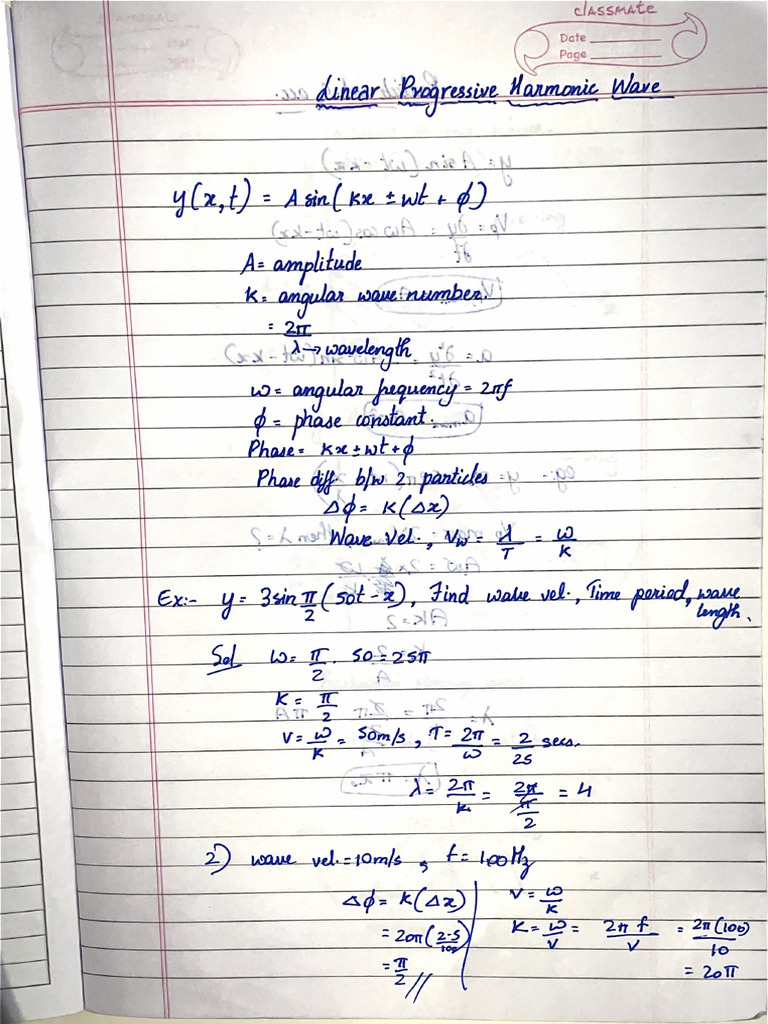 classmate
Date
Page
Linear Progressive Harmonic Wave
y(x,t) = A sin( kx ± wt + ϕ)
A= amplitude
K= angular wave number.
= 2π/λ → wavelength
ω= angular frequency = 2πf
ϕ = phase constant.
Phase= kx ± wt + ϕ
Phase diff. b/w 2 particles =
Δϕ = K(Δx)
Wave Vel., Vw = λ/T = ω/K
Ex:- y = 3 sin π/2 (50t - x), Find wave vel., Time period, wave length.
Sol ω = π/2 . 50 = 25π
K = π/2
V= ω/K = 50m/s , T= 2π/ω = 2/25 secs.
λ = 2π/K = 2π/(π/2) = 4
2) wave vel.=10m/s , f= 100Hz
Δϕ = K(Δx) V= ω/K
= 20π(2.5/100) K= ω/V = 2π f/V = 2π(100)/10
= π/2 // = 20π